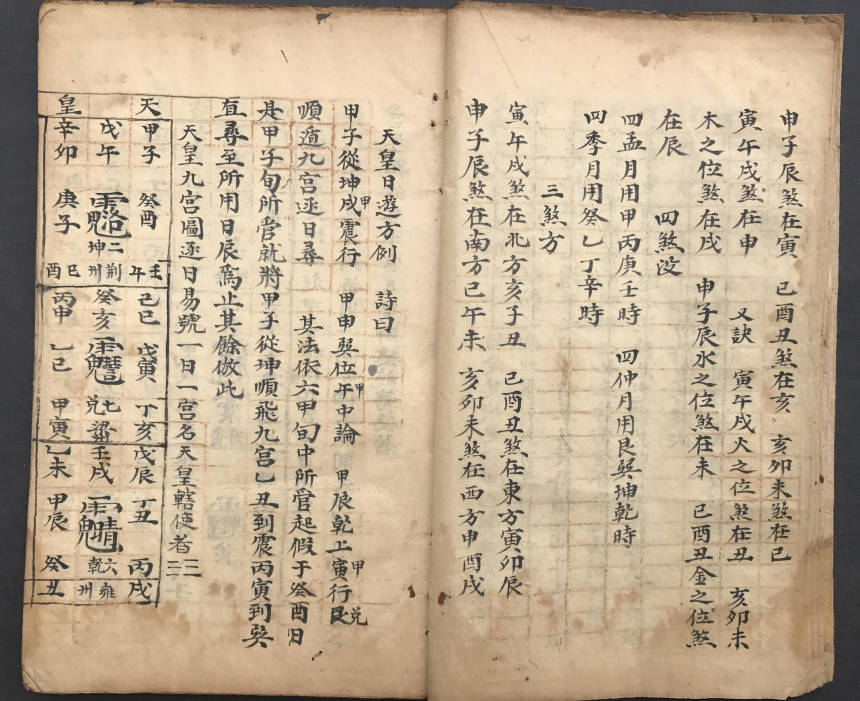 申子辰煞在寅　巳酉丑煞在亥　亥卯未煞在巳
寅午戌煞在申　又訣　寅午戌火之位煞在丑　亥卯未
木之位煞在戌　申子辰水之位煞在未　巳酉丑金之位煞
在辰　四煞没
四孟月用甲丙庚壬時　四仲月用艮巽坤乾時
四季月用癸乙丁辛時
三煞方
寅午戌煞在北方亥子丑　巳酉丑煞在東方寅卯辰
申子辰煞在南方巳午未　亥卯未煞在西方申酉戌
天皇日遊方例　詩曰
甲子從坤甲戌震行　甲申巽位甲午中論　甲辰乾上甲寅兑行艮
順遁九宫逐日尋　其法依六甲旬中所管起假于癸酉日
是甲子旬所管就將甲子從坤順飛九宫乙丑到震丙寅到巽
直尋至所用日辰焉止其餘倣此
天皇九宫圖逐日易號一日一宫名天皇轄使者三三
天　甲子　癸酉　壬午　己巳　戊寅　丁亥　戊辰　丁丑　丙戌
戊午　二坤　荆州　癸亥　七兑　梁　壬戌　六乾　雍州
皇　辛卯　庚子　己酉　丙申　乙巳　甲寅　乙未　甲辰　癸丑